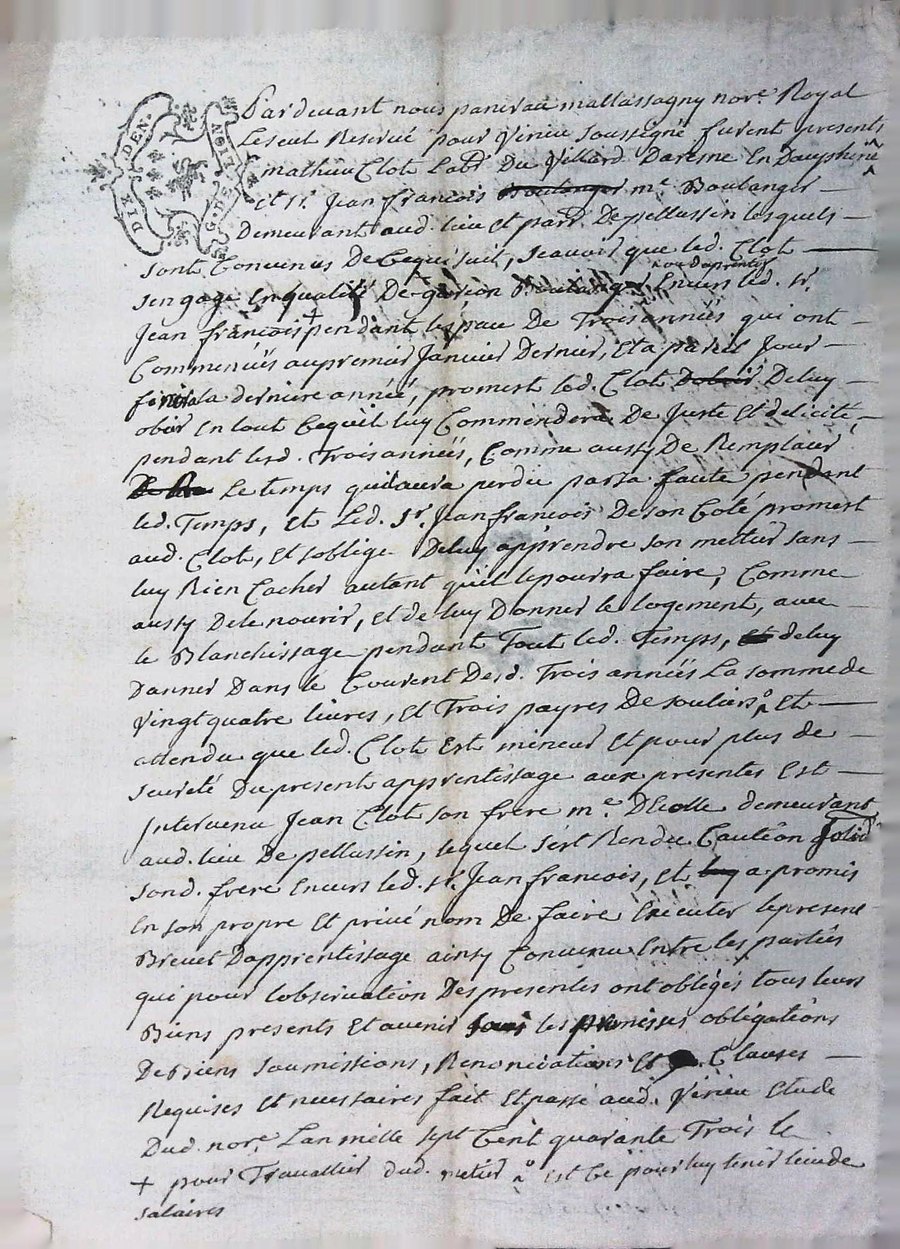 DIX. DEN.
G. DE LION
Pardevant nous panirau mallassagny nore. Royal
Le seul Reservé pour Virieu soussigné furent presents
mathieu Clot Labr. Du Villard Darenne En Dauphiné
et sr. Jean francois Boulanger me. Boulanger
Demeurant aud. lieu et parr. De pellussin lesquels
sont Convenus De Ce qui suit, scavoir que led. Clot
ou daprentis
sengage En qualité De garcon Envers led. sr.
Jean francois + pendant lespace De Trois années qui ont
Commencées au premier Janvier Dernier, Et a pareil Jour
finira la derniere année, promest led. Clot Dobeir De luy
obeir En tout Ce qu'il luy Commendera De Juste Et de licité,
pendant lesd. Trois années, Comme aussy De Remplacer
Le temps quil aura perdu par sa faute pendant
led. Temps, Et Led. sr. Jean francois De son Coté promest
aud. Clot, Et soblige De luy apprendre son mettier sans
luy Rien Cacher autant qu'il le pourra faire, Comme
aussy De le nourir, et de luy Donner le logement, avec
le Blanchissage pendant Tout led. Temps, et de luy
Danner Dans le Courent Desd. Trois années La somme de
Vingt quatre livres, et Trois payres De souliers, Et
attendu que led. Clot Est mineur Et pour plus de
seureté Du present apprentissage aux presentes Est
Intervenu Jean Clot son frere me. D'Ecolle demeurant
aud. lieu De pellussin, lequel sest Rendu Caution solid
sond. frere Envers led. sr. Jean francois, et luy a promis
En son propre Et privé nom De faire Executer le present
Brevet Dapprentissage ainsy Convenu Entre les parties
qui pour lobservation Des presentes ont obligés tous leurs
Biens presents Et avenir sous les promisses obligations
De Biens soumissions, Renonciations Et Clauses
Requises Et necessaires fait Et passé aud. Virieu Etude
Dud. nore. Lan mille sept Cent quarante Trois le
+ pour Travallier dud. metier est Ce pour luy tenir lieu de
salaires